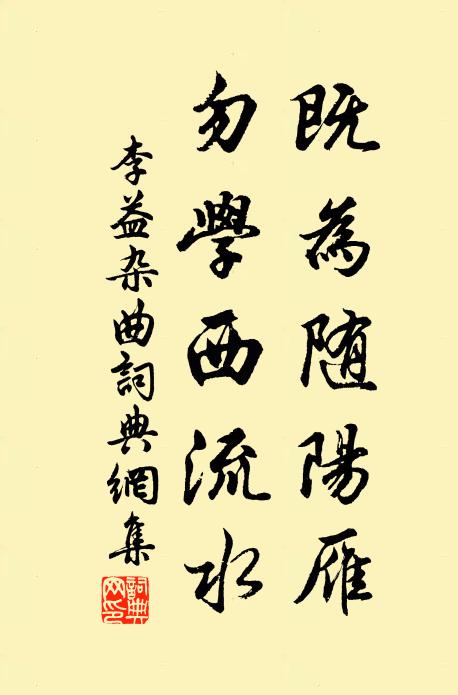 既為随陽雁
勿學西流水
李益杂曲詞典網集
詞典